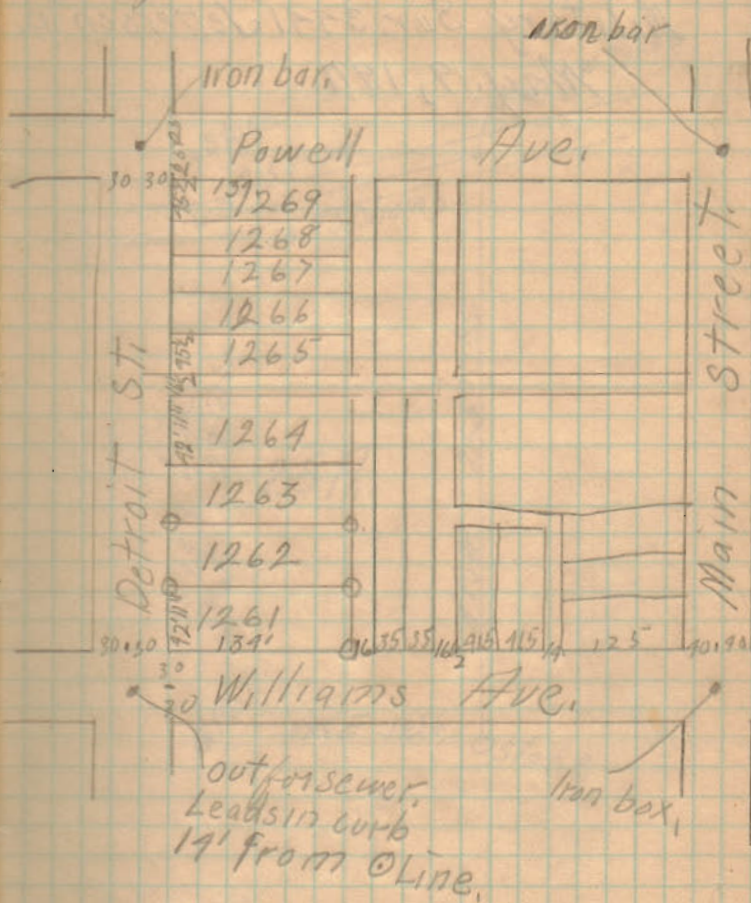 Iron bar
Iron bar.
Powell Ave.
30 30
139'
1269
1268
1267
1266
1265
1264
1263
1262
1261
Detroit ST.
Main Street.
42'11"
139'
30 30
16 35 35 16½ 41.5 41.5 14 125 40.40
30
30
Williams Ave.
out for sewer.
Leads in curb
14' from ⊙ Line.
Iron box.